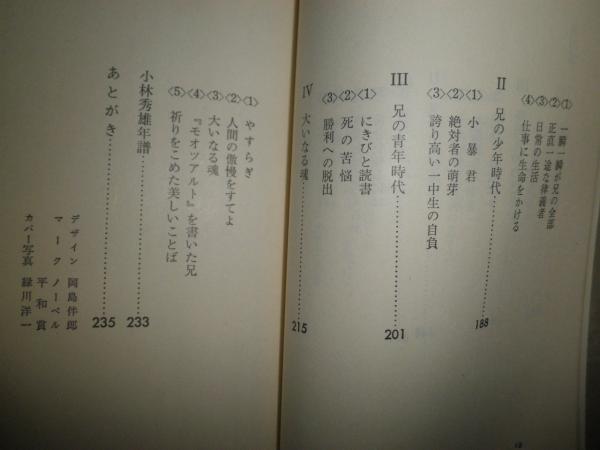 〈1〉一瞬一瞬が兄の全部
〈2〉正直一途な律義者
〈3〉日常の生活
〈4〉仕事に生命をかける
II 兄の少年時代……188
〈1〉小暴君
〈2〉絶対者の萌芽
〈3〉誇り高い一中生の自負
III 兄の青年時代……201
〈1〉にきびと読書
〈2〉死の苦悩
〈3〉勝利への脱出
IV 大いなる魂……215
〈1〉やすらぎ
〈2〉人間の傲慢をすてよ
〈3〉大いなる魂
〈4〉『モオツアルト』を書いた兄
〈5〉祈りをこめた美しいことば
小林秀雄年譜……233
あとがき……235
デザイン 岡島伴郎
マーク ノーベル平和賞
カバー写真 緑川洋一